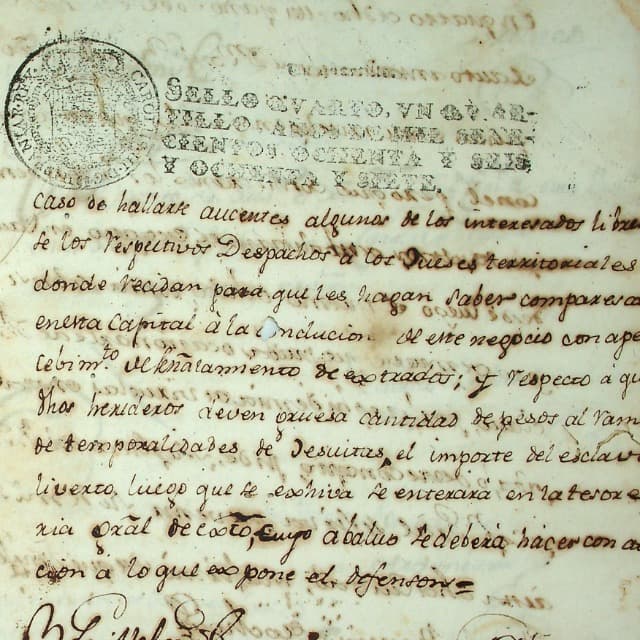 SELLO QVARTO, VN QVAR-
TILLO, AÑOS DE MIL SETE-
CIENTOS OCHENTA Y SEIS,
Y OCHENTA Y SIETE.
caso de hallarse aucentes algunos de los interesados libra
se los respectivos Despachos á los Jueses territoriales
donde recidan para que les hagan saber comparesca
en esta Capital á la conclucion de este negocio con ape
cebim.to de señalamiento de extrados; y respecto á q
dhos herederos deven gruesa cantidad de pesos al ram
de temporalidades de Jesuitas, el importe del esclavo
liverto, luego que se exhiva se enterará en la tesore
ria gral de exto, cuyo abaluo se deberá haçer con a
cion á lo que expone el defensor=